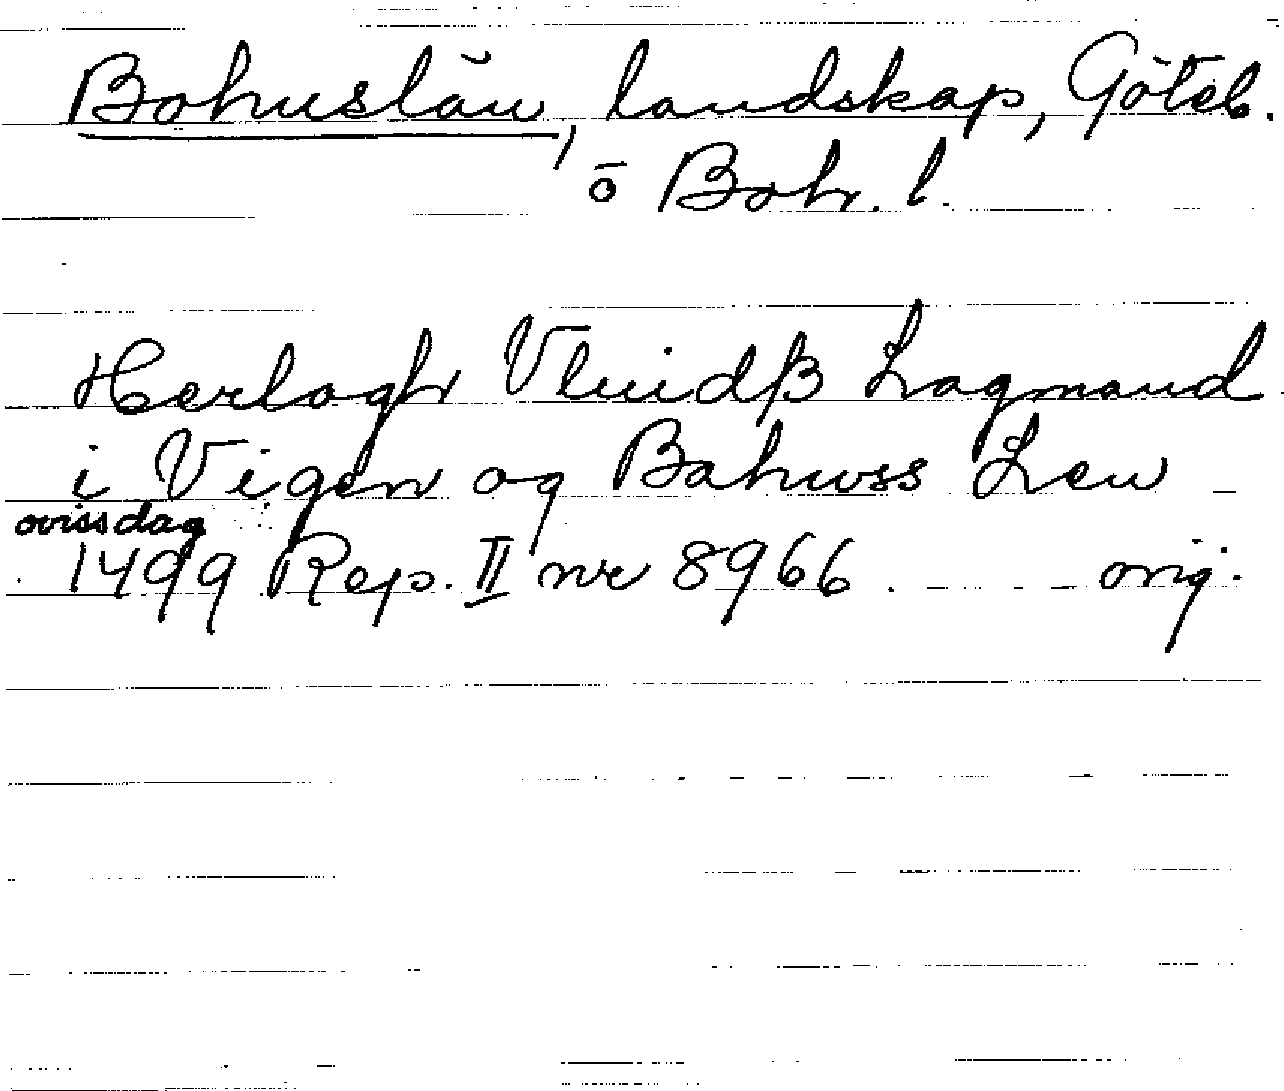 Bohuslän, landskap, Göteb.
o Boh. l.
Herlogh Vluidß Lagmand
i Vigen og Bahuss Len
oviss dag
1499 Rep. II nr 8966. orig.